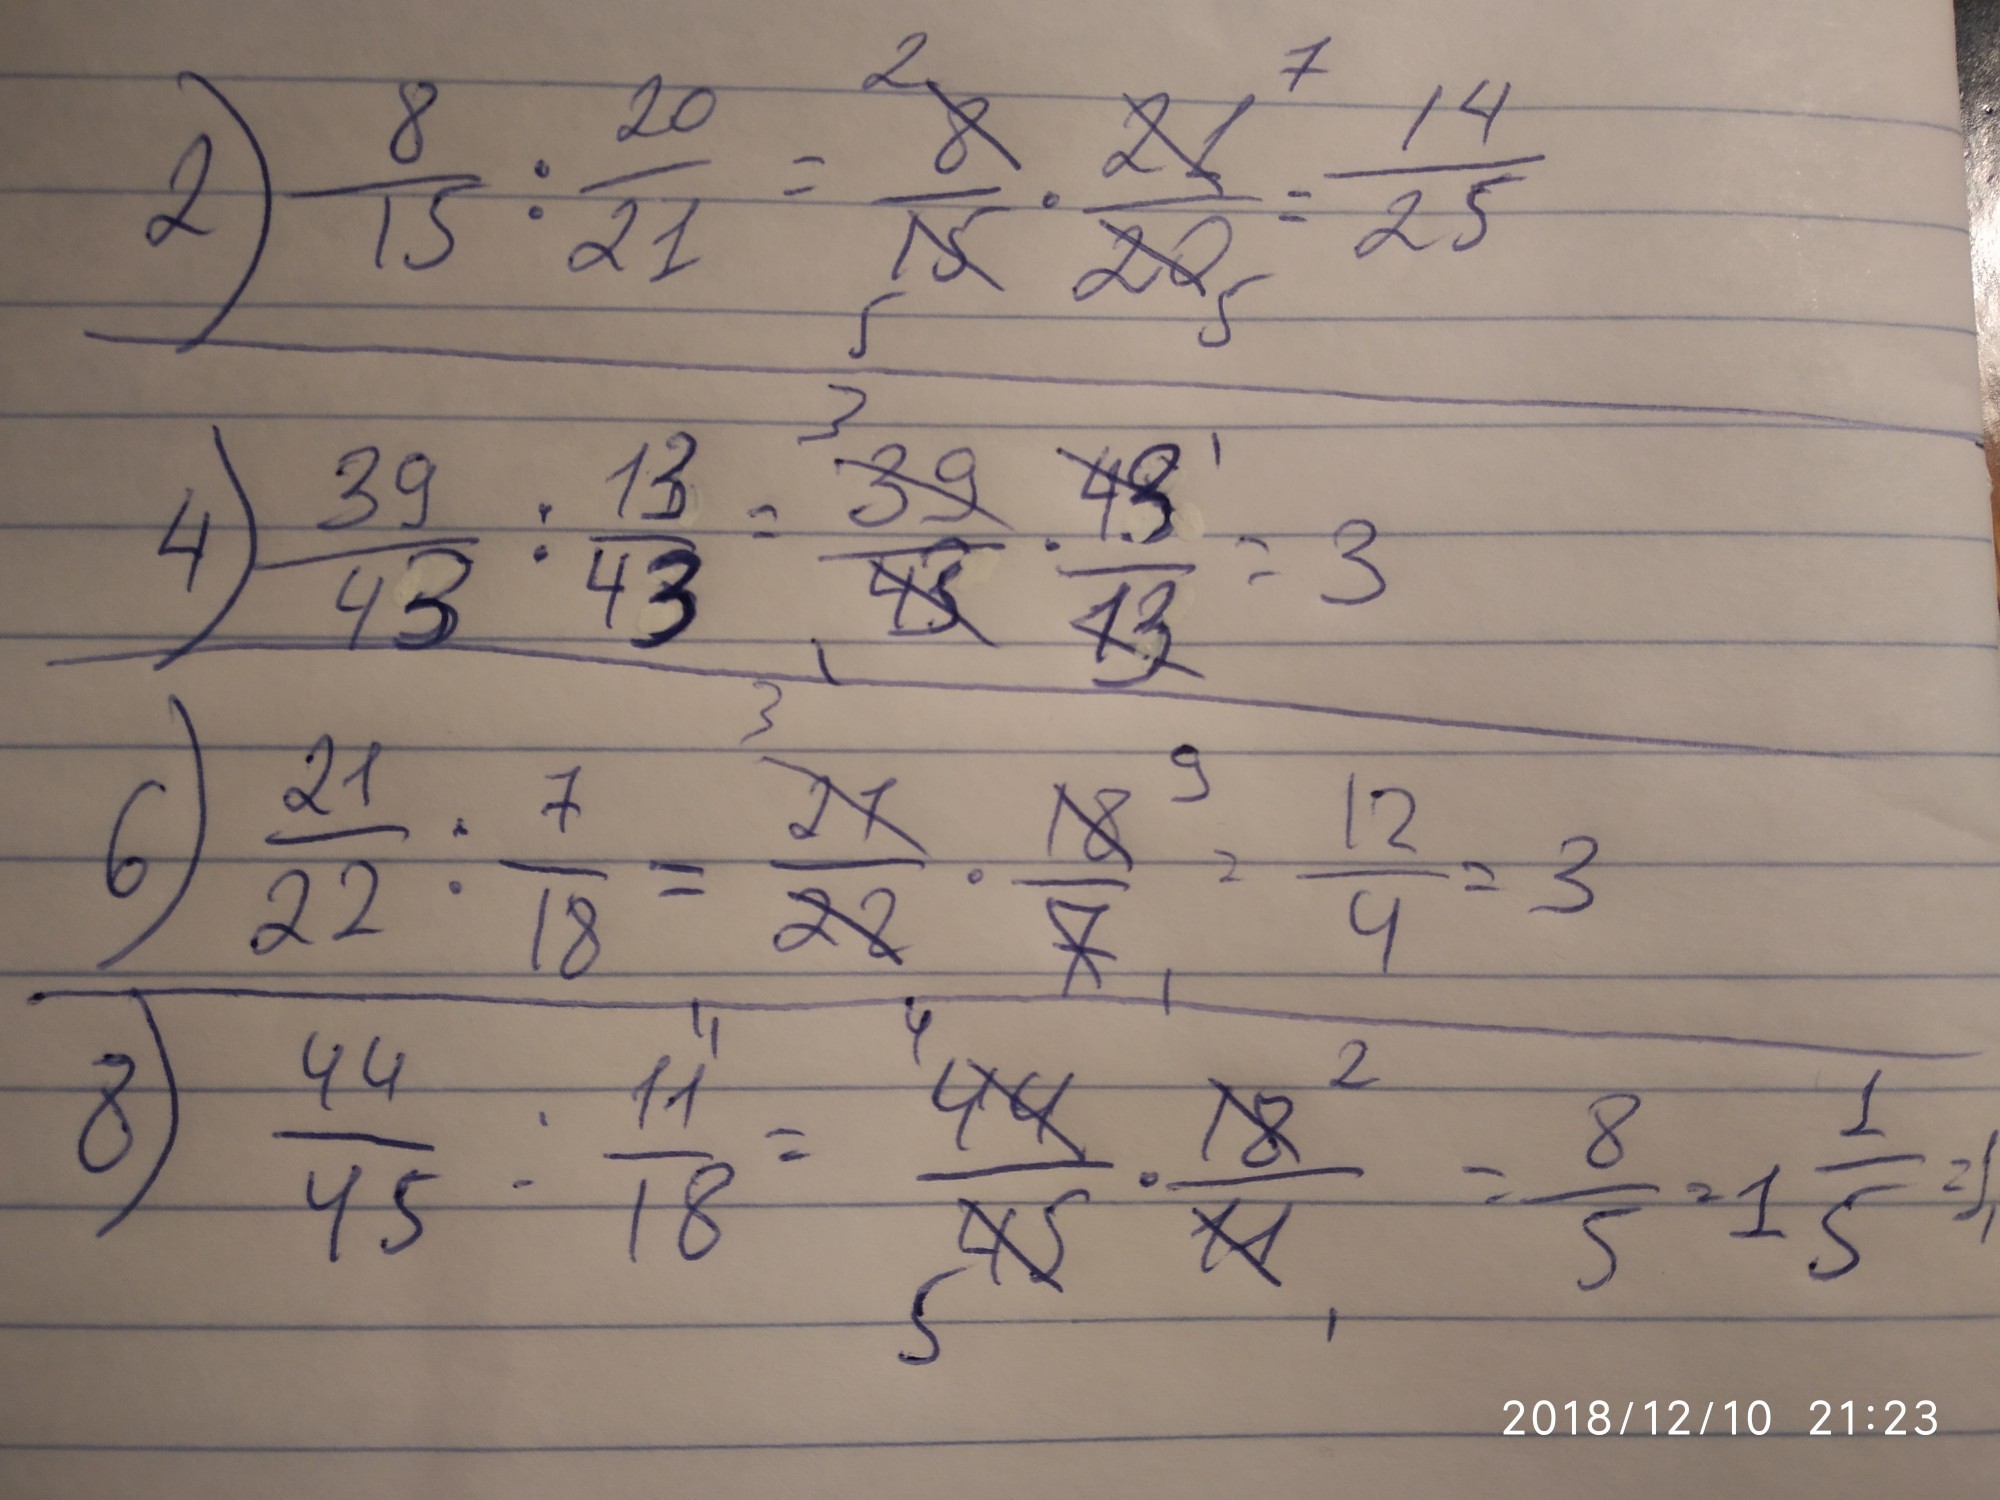 2) 8/15 : 20/21 = 2 8/15 5 · 21/20 7 5 = 14/25
4) 39/43 : 13/43 = 3 39/43 1 · 43/13 1 = 3
6) 21/22 : 7/18 = 3 21/22 · 18/7 9 1 = 12/4 = 3
8) 44/45 : 11/18 = 4 44/45 5 · 18/11 2 1 = 8/5 = 1 1/5 =
2018/12/10 21:23